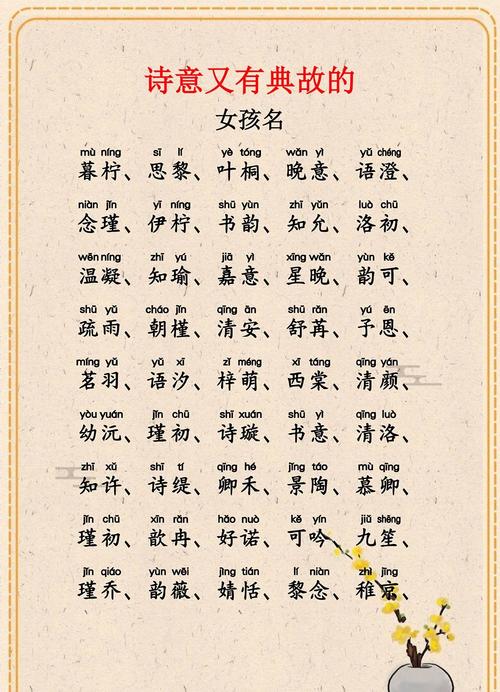 诗意又有典故的
女孩名
mù níng sī lí yè tóng wǎn yì yǔ chéng
暮柠、思黎、叶桐、晚意、语澄、
niàn jǐn yī níng shū yùn zhī yǔn luò chū
念瑾、伊柠、书韵、知允、洛初、
wēn níng zhī yú jiā yì xīng wǎn yùn kě
温凝、知瑜、嘉意、星晚、韵可、
shū yǔ cháo jǐn qīng ān shū rǎn yú ēn
疏雨、朝槿、清安、舒苒、予恩、
míng yǔ yǔ xī zǐ méng xī táng qīng yán
茗羽、语汐、梓萌、西棠、清颜、
yòu yuán jǐn chū shī xuán shū yì qīng luò
幼沅、瑾初、诗璇、书意、清洛、
zhī xǔ shī tí qīng hé jǐng táo mù qīng
知许、诗缇、卿禾、景陶、慕卿、
jǐn chū xīn rǎn hǎo nuò kě yín jiǔ shēng
瑾初、歆冉、好诺、可吟、九笙、
jǐn qiáo yùn wēi jìng tián lí niàn zhì jīng
瑾乔、韵薇、婧恬、黎念、稚京、